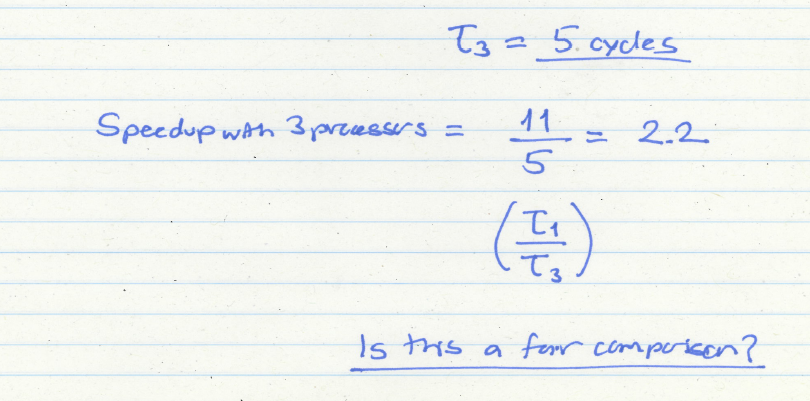 T₃ = 5 cycles
Speedup with 3 processors = 11/5 = 2.2
(T₁/T₃)
Is this a fair comparison?